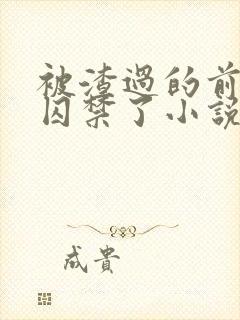 被渣過的前
囚禁了小說
成貴